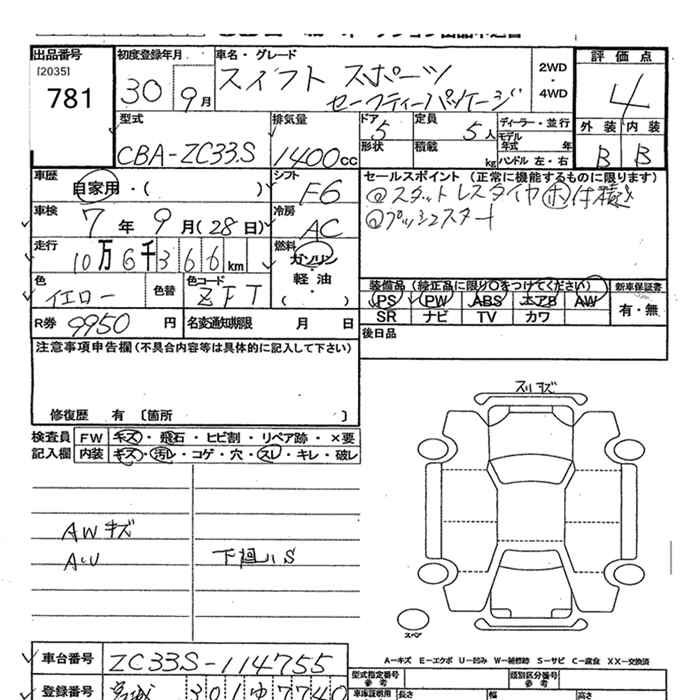 出品番号 初度登録年月 車名・グレード 評価点
[2035] スイフト スポーツ 2WD
781 30 9月 セーフティーパッケージ ・4WD 4
型式 排気量 ドア 定員 ディーラー・並行 外装 内装
5 5人 モデル年式 年
CBA-ZC33S 1400cc 形状 積載 kg ハンドル 左・右 B B
車歴 自家用・( ) シフト F6 セールスポイント (正常に機能するものに限ります)
車検 7年9月(28日) 冷房 AC プッシュスタート
走行 10万6千366km 燃料 ガソリン・軽油・( )
色 イエロー 色替 色コード ZFT 装備品 (純正品に限り○をつけてください) 新車保証書
PS PW ABS エアB AW 有・無
R券 9950円 名変通知期限 月 日 SR ナビ TV カワ
後日品
注意事項申告欄(不具合内容等は具体的に記入して下さい)
修復歴 有 〔箇所 〕
スリキズ
検査員 FW キズ・飛石・ヒビ割・リペア跡・×要
記入欄 内装 キズ・汚レ・コゲ・穴・スレ・キレ・破レ
AWキズ
AU 下廻りS
スペア
A-キズ E-エクボ U-凹み W-補修跡 S-サビ C-腐食 XX-交換済
車台番号 ZC33S-114755 型式指定番号 参考 類別区分番号 参考
登録番号 宮城 301 ゆ 7740 車庫証明用 長さ 幅 高さ